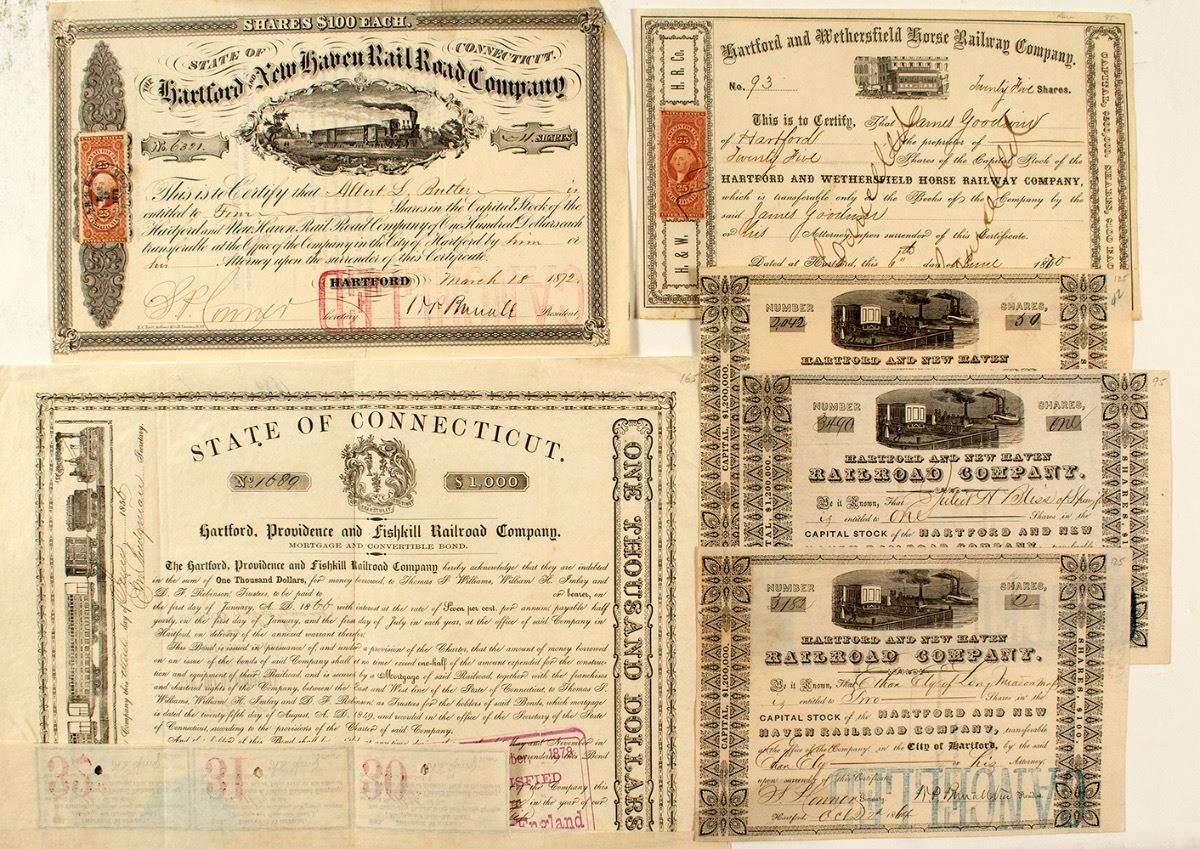 SHARES $100 EACH.
STATE OF CONNECTICUT.
THE Hartford AND New Haven Rail Road Company
No. 6321.
SHARES
This is to Certify that Albert S. Butler is
entitled to Four Shares in the Capital Stock of the
Hartford and New Haven Rail Road Company of One Hundred Dollars each
transferable at the Office of the Company in the City of Hartford by him or
his Attorney upon the surrender of this Certificate.
HARTFORD March 18 1872.
Secretary President,
Hartford and Wethersfield Horse Railway Company.
H. R. Co.
H. & W.
No. 93 Twenty Five Shares.
This is to Certify, That James Goodwin
of Hartford the proprietor of
Twenty Five Shares of the Capital Stock of the
HARTFORD AND WETHERSFIELD HORSE RAILWAY COMPANY,
which is transferable only on the Books of the Company by the
said James Goodwin
or his Attorney upon surrender of this Certificate.
Dated at Hartford, this 6th day of June 1870
Cancelled
25
25
NUMBER SHARES,
2042 50
HARTFORD AND NEW HAVEN
CAPITAL, $1,200,000.
95
NUMBER SHARES,
3490 one
HARTFORD AND NEW HAVEN
RAILROAD COMPANY.
Be it Known, That
is entitled to one Shares in the
CAPITAL STOCK of the HARTFORD AND NEW
HAVEN RAILROAD COMPANY,
CAPITAL, $1,200,000.
125
NUMBER SHARES,
3182 2
HARTFORD AND NEW HAVEN
RAILROAD COMPANY.
Be it Known, That Ethan Ely of Longmeadow
is entitled to Two Shares in the
CAPITAL STOCK of the HARTFORD AND NEW
HAVEN RAILROAD COMPANY, transferable
at the office of the Company, in the City of Hartford, by the said
Ethan Ely or his Attorney,
upon surrender of this Certificate.
Secretary
Hartford, Oct 22d
CAPITAL, $1,200,000.
SHARES $100
CANCELLED
165
STATE OF CONNECTICUT.
No. 1689. $1,000
Hartford, Providence and Fishkill Railroad Company.
MORTGAGE AND CONVERTIBLE BOND.
The Hartford, Providence and Fishkill Railroad Company hereby acknowledge that they are indebted
in the sum of One Thousand Dollars, for money borrowed, to Thomas S. Williams, William H. Imlay and
D. F. Robinson, Trustees, to be paid to or bearer, on
the first day of January, A. D. 1866 with interest at the rate of Seven per cent. per annum, payable half
yearly, on the first day of January, and the first day of July in each year, at the office of said Company in
Hartford, on delivery of the annexed warrant therefor.
This Bond is issued in pursuance of, and under a provision of the Charter, that the amount of money borrowed
on an issue of the bonds of said Company shall at no time exceed one-half of the amount expended for the construc-
tion and equipment of their Railroad, and is secured by a Mortgage of said Railroad, together with the franchises
and chartered rights of the Company, between the East and West line of the State of Connecticut, to Thomas S.
Williams, William H. Imlay and D. F. Robinson, as Trustees for the holders of said Bonds, which mortgage
is dated the twenty-fifth day of August, A. D. 1849, and recorded in the office of the Secretary of the State
of Connecticut, according to the provisions of the Charter of said Company.
ONE THOUSAND DOLLARS
33 31 30
1879
England